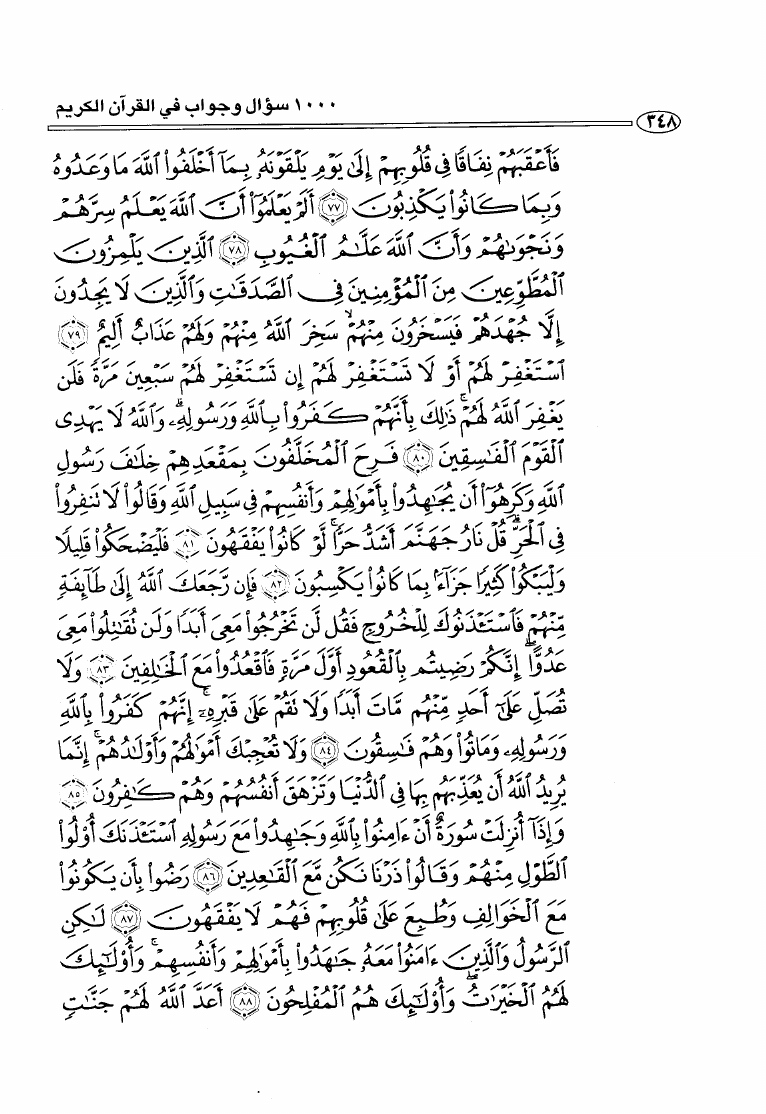 ١٠٠٠ سؤال وجواب في القرآن الكريم
٣٤٨
فَأَعْقَبَهُمْ نِفَاقًا فِى قُلُوبِهِمْ إِلَىٰ يَوْمِ يَلْقَوْنَهُۥ بِمَآ أَخْلَفُوا۟ ٱللَّهَ مَا وَعَدُوهُ
وَبِمَا كَانُوا۟ يَكْذِبُونَ ٧٧ أَلَمْ يَعْلَمُوٓا۟ أَنَّ ٱللَّهَ يَعْلَمُ سِرَّهُمْ
وَنَجْوَىٰهُمْ وَأَنَّ ٱللَّهَ عَلَّٰمُ ٱلْغُيُوبِ ٧٨ ٱلَّذِينَ يَلْمِزُونَ
ٱلْمُطَّوِّعِينَ مِنَ ٱلْمُؤْمِنِينَ فِى ٱلصَّدَقَٰتِ وَٱلَّذِينَ لَا يَجِدُونَ
إِلَّا جُهْدَهُمْ فَيَسْخَرُونَ مِنْهُمْ ۙ سَخِرَ ٱللَّهُ مِنْهُمْ وَلَهُمْ عَذَابٌ أَلِيمٌ ٧٩
ٱسْتَغْفِرْ لَهُمْ أَوْ لَا تَسْتَغْفِرْ لَهُمْ إِن تَسْتَغْفِرْ لَهُمْ سَبْعِينَ مَرَّةً فَلَن
يَغْفِرَ ٱللَّهُ لَهُمْ ۚ ذَٰلِكَ بِأَنَّهُمْ كَفَرُوا۟ بِٱللَّهِ وَرَسُولِهِۦ ۗ وَٱللَّهُ لَا يَهْدِى
ٱلْقَوْمَ ٱلْفَٰسِقِينَ ٨٠ فَرِحَ ٱلْمُخَلَّفُونَ بِمَقْعَدِهِمْ خِلَٰفَ رَسُولِ
ٱللَّهِ وَكَرِهُوٓا۟ أَن يُجَٰهِدُوا۟ بِأَمْوَٰلِهِمْ وَأَنفُسِهِمْ فِى سَبِيلِ ٱللَّهِ وَقَالُوا۟ لَا تَنفِرُوا۟
فِى ٱلْحَرِّ ۗ قُلْ نَارُ جَهَنَّمَ أَشَدُّ حَرًّا ۚ لَّوْ كَانُوا۟ يَفْقَهُونَ ٨١ فَلْيَضْحَكُوا۟ قَلِيلًا
وَلْيَبْكُوا۟ كَثِيرًا جَزَآءًۢ بِمَا كَانُوا۟ يَكْسِبُونَ ٨٢ فَإِن رَّجَعَكَ ٱللَّهُ إِلَىٰ طَآئِفَةٍ
مِّنْهُمْ فَٱسْتَـْٔذَنُوكَ لِلْخُرُوجِ فَقُل لَّن تَخْرُجُوا۟ مَعِىَ أَبَدًا وَلَن تُقَٰتِلُوا۟ مَعِىَ
عَدُوًّا ۖ إِنَّكُمْ رَضِيتُم بِٱلْقُعُودِ أَوَّلَ مَرَّةٍ فَٱقْعُدُوا۟ مَعَ ٱلْخَٰلِفِينَ ٨٣ وَلَا
تُصَلِّ عَلَىٰٓ أَحَدٍ مِّنْهُم مَّاتَ أَبَدًا وَلَا تَقُمْ عَلَىٰ قَبْرِهِۦٓ ۚ إِنَّهُمْ كَفَرُوا۟ بِٱللَّهِ
وَرَسُولِهِۦ وَمَاتُوا۟ وَهُمْ فَٰسِقُونَ ٨٤ وَلَا تُعْجِبْكَ أَمْوَٰلُهُمْ وَأَوْلَٰدُهُمْ ۚ إِنَّمَا
يُرِيدُ ٱللَّهُ أَن يُعَذِّبَهُم بِهَا فِى ٱلدُّنْيَا وَتَزْهَقَ أَنفُسُهُمْ وَهُمْ كَٰفِرُونَ ٨٥
وَإِذَآ أُنزِلَتْ سُورَةٌ أَنْ ءَامِنُوا۟ بِٱللَّهِ وَجَٰهِدُوا۟ مَعَ رَسُولِهِ ٱسْتَـْٔذَنَكَ أُو۟لُوا۟
ٱلطَّوْلِ مِنْهُمْ وَقَالُوا۟ ذَرْنَا نَكُن مَّعَ ٱلْقَٰعِدِينَ ٨٦ رَضُوا۟ بِأَن يَكُونُوا۟
مَعَ ٱلْخَوَالِفِ وَطُبِعَ عَلَىٰ قُلُوبِهِمْ فَهُمْ لَا يَفْقَهُونَ ٨٧ لَٰكِنِ
ٱلرَّسُولُ وَٱلَّذِينَ ءَامَنُوا۟ مَعَهُۥ جَٰهَدُوا۟ بِأَمْوَٰلِهِمْ وَأَنفُسِهِمْ ۚ وَأُو۟لَٰٓئِكَ
لَهُمُ ٱلْخَيْرَٰتُ ۖ وَأُو۟لَٰٓئِكَ هُمُ ٱلْمُفْلِحُونَ ٨٨ أَعَدَّ ٱللَّهُ لَهُمْ جَنَّٰتٍ